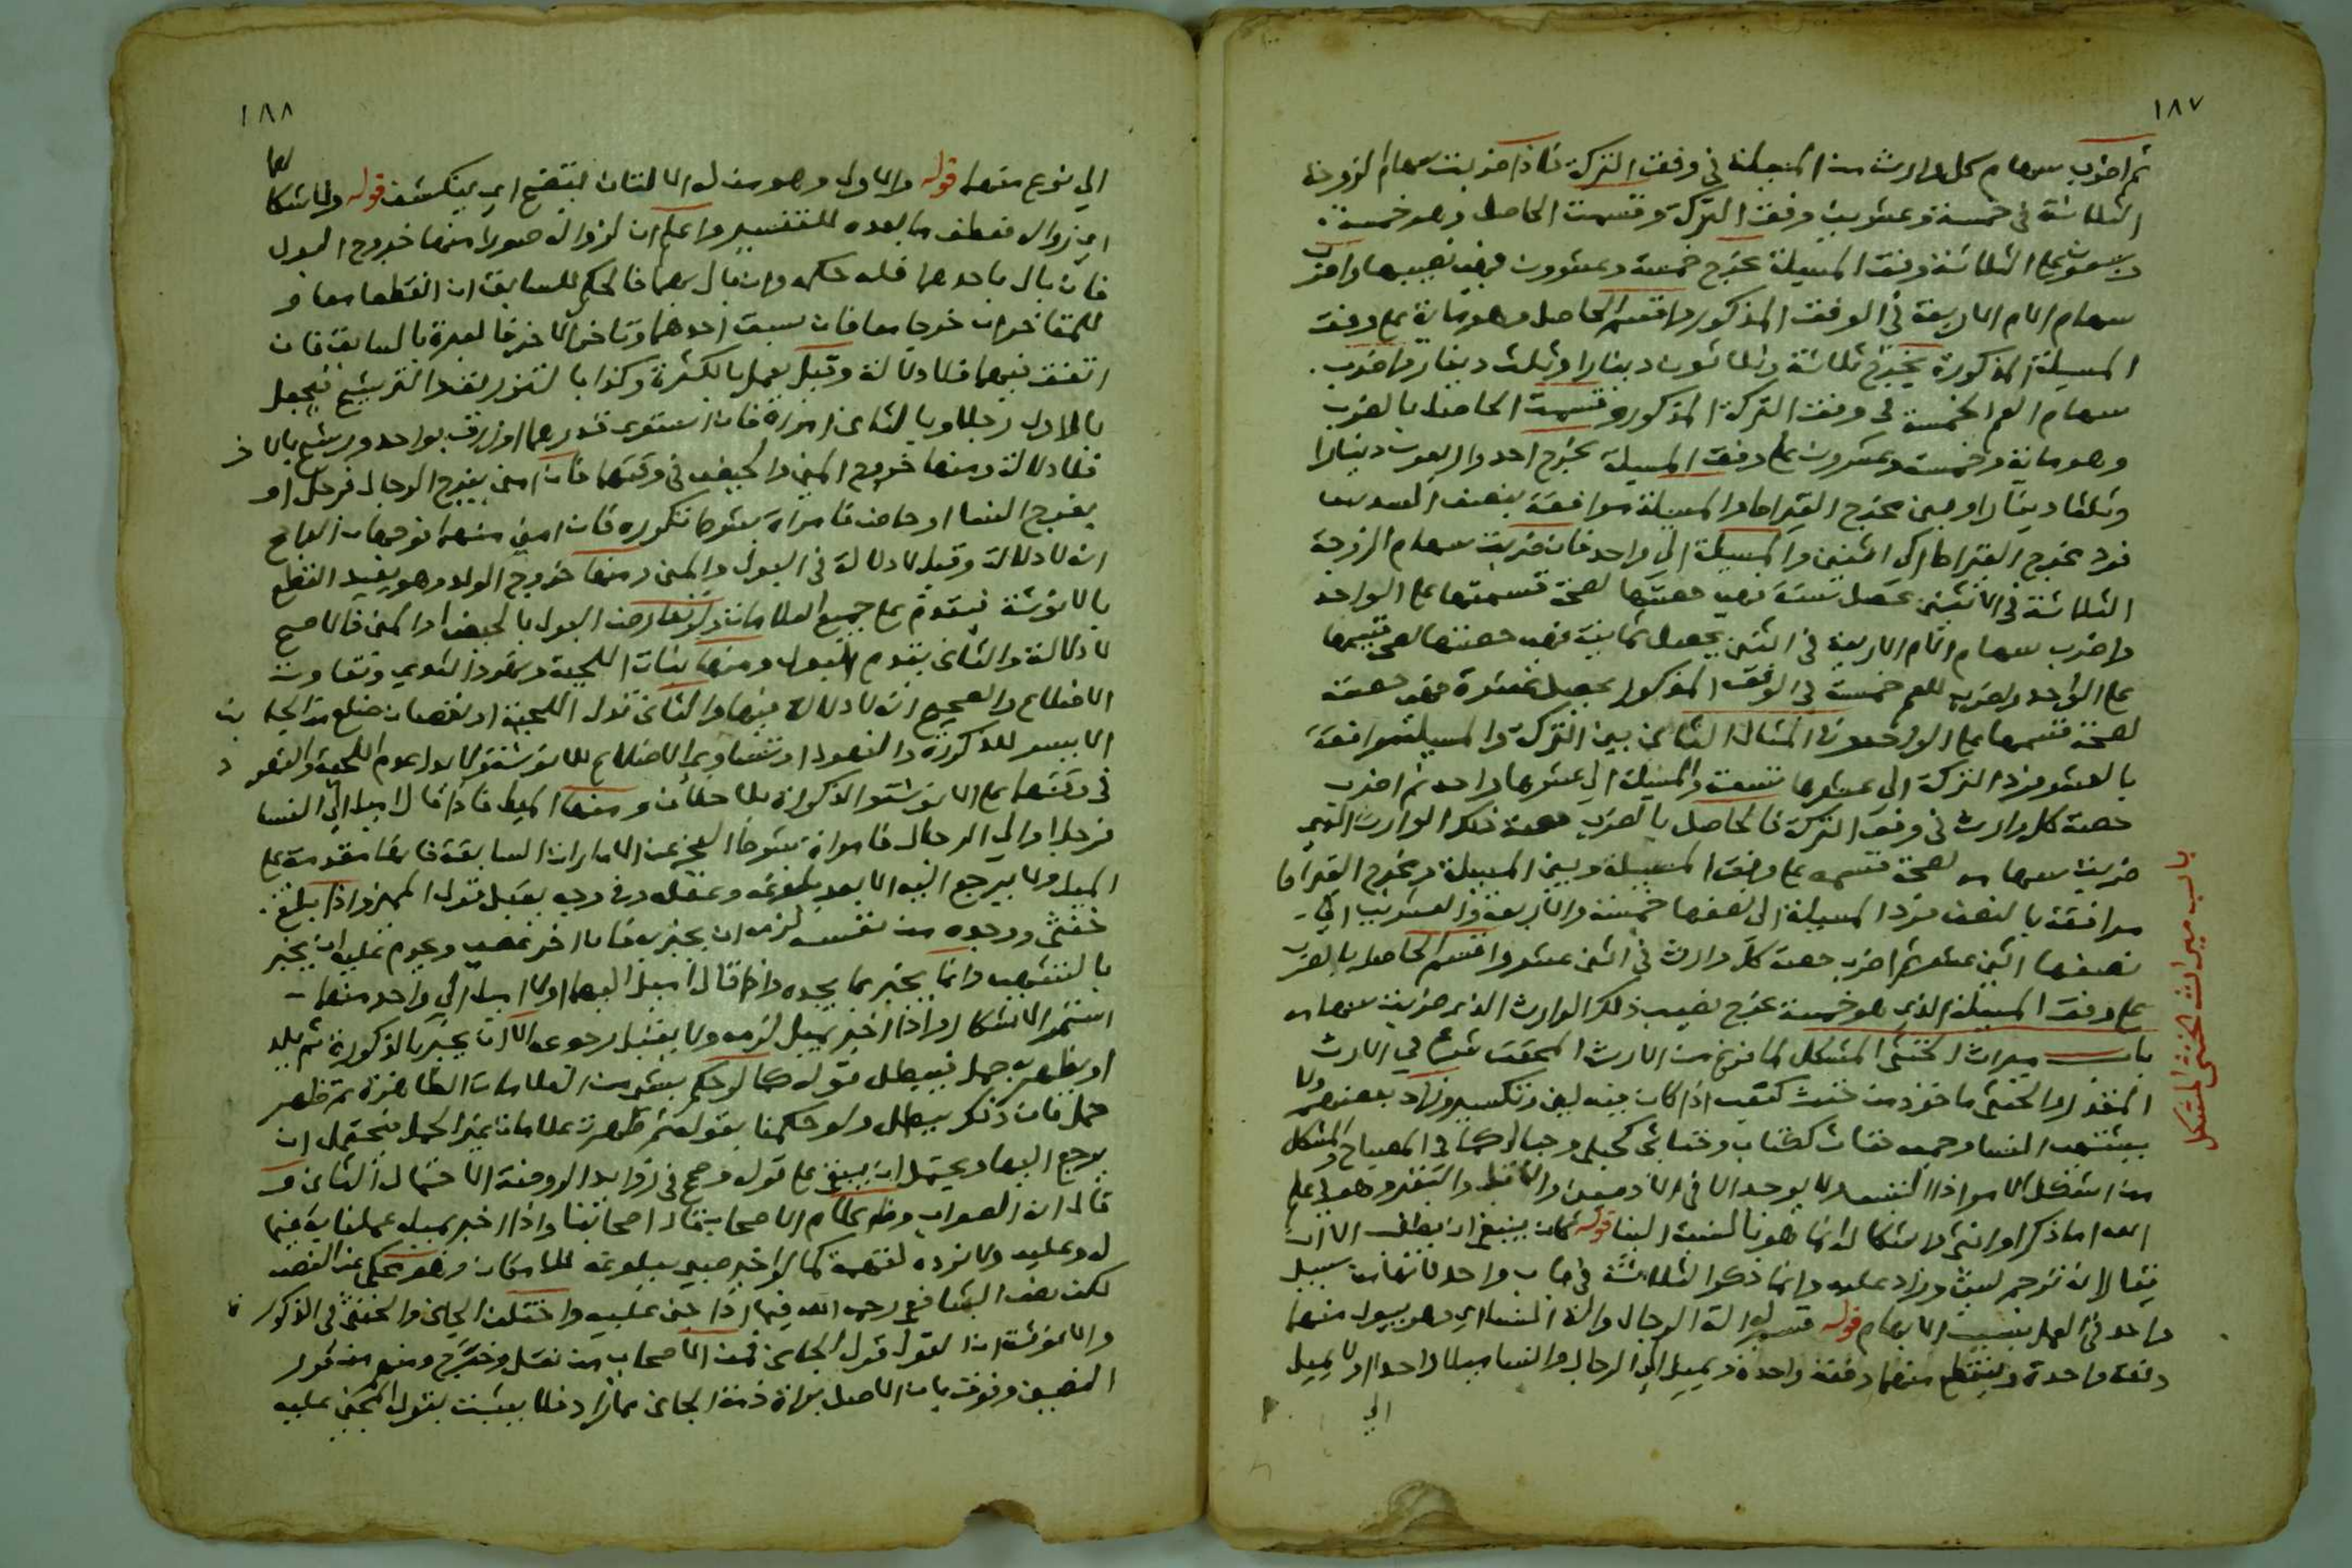 ١٨٧
ثم اضرب سهام كل وارث من المسيلة في وفق التركة فاذا ضربت سهام الزوجة
الثلاثة في خمسة وعشرين وفق التركة وقسمت الحاصل وهو خمسة
وسبعون على الثلاثة وفق المسيلة يخرج خمسة وعشرون فهي نصيبها واضرب
سهام الام الاربعة في الوفق المذكور واقسم الحاصل وهو ماية على وفق
المسيلة المذكورة يخرج ثلاثة وثلاثون دينارا وثلث دينار واضرب
سهام العم الخمسة في وفق التركة المذكور وقسمت الحاصل بالضرب
وهو ماية وخمسة وعشرون على وفق المسيلة يخرج احد واربعون دينارا
وثلثا دينار وبين مخرج القيراط والمسيلة موافقة بنصف السدس
فرد مخرج القيراط الى اثنين والمسيلة الى واحد فان ضربت سهام الزوجة
الثلاثة في الاثنين تحصل ستة فهي حصتها لصحة قسمتها على الواحد
واضرب سهام الام الاربعة في اثنين يحصل ثمانية فهي حصتها لصحة قسمها
على الواحد ولضرب للعم خمسة في الوفق المذكور يحصل عشرة فهي حصته
لصحة قسمها على الواحد وفي المثال الثاني بين التركة والمسيلة موافقة
بالعشر فرد التركة الى عشرها تسعة والمسيلة الى عشرها واحد ثم اضرب
حصة كل وارث في وفق التركة فالحاصل بالضرب حصة ذلك الوارث الذي
ضربت سهامه لصحة قسمه على وفق المسيلة وبين المسيلة ومخرج القيراط
موافقة بالنصف فرد المسيلة الى نصفها خمسة والاربعة والعشرين الى
نصفها اثني عشر ثم اضرب حصة كل وارث في اثني عشر واقسم الحاصل بالضرب
على وفق المسيلة الذي هو خمسة يخرج نصيب ذلك الوارث الذي ضربت سهامه
باب ميراث الخنثى المشكل لما فرغ من الارث المحقق شرع في الارث
المقدر والخنثى ماخوذ من خنث كتعب اذا كان فيه لين وتكسر وزاد بعضهم ولا
يشتهي النسا وجمعه خناث ككتاب وخناثى كحبلى وحبالى كما في المصباح والمشكل
من اشكل الامر اذا التبس ولا يوجد الا في الادميين والابل والبقر وهو في علم
الله اما ذكر او انثى والاشكال انما هو بالنسبة الينا قوله كان ينبغي ان يضاف الا ان
يقال لانه ترجم لشي وزاد عليه وانما ذكر الثلاثة في باب واحد لانها من سبيل
واحد في العمل بسبب الابهام قوله قسم له الة الرجال والة النسا اي وهو يبول منهما
دفعة واحدة وينقطع منهما دفعة واحدة ويميل الى الرجال والنسا ميلا واحدا ولا يميل
الى
باب ميراث الخنثى المشكل
١٨٨
الى نوع منهما قوله والاول وهو من له الالتان يتضح اي ينكشف قوله والاشكال
اي زواله فعطف ما بعده للتفسير واعلم ان لزواله صورا منها خروج البول
فان بال باحدهما فله حكمه وان بال بهما فالحكم للسابق ان انقطعا معا و
للمتاخر ان خرجا معا فان سبق احدهما وتاخر الاخر فالعبرة بالسابق فان
اتفق فيهما فلا دلالة وقيل يعمل بالكثرة وكذا بالتزريق والترشيش فيجعل
بالاول رجلا وبالثاني امراة فان استوى قدرهما او زرق بواحد ورشش بالاخر
فلا دلالة ومنها خروج المني والحيض في وقتهما فان امنى بفرج الرجال فرجل او
بفرج النسا او حاض فامراة بشرط تكرره فان امنى منهما فوجهان الراجح
ان لا دلالة وقيل لا دلالة في البول والمني ومنها خروج الولد وهو يفيد القطع
بالانوثة فيقدم على جميع العلامات ولو تعارض البول بالحيض او المني فالاصح
لا دلالة والثاني يقدم البول ومنها نبات اللحية ونهود الثدي وتفاوت
الاضلاع والصحيح انه لا دلالة فيها والثاني تدل اللحية او نقصان ضلع من الجانب
الايسر للذكورة والنهود او تساوي الاضلاع للانوثة ولا يدل عدم اللحية والنهود
في وقتهما على الانوثة والذكورة بلا خلاف ومنها الميل فاذا قال اميل الى النسا
فرجل او الى الرجال فامراة بشرط العجز عن الامارات السابقة فانها مقدمة على
الميل ولا يرجع اليه الا بعد بلوغه وعقله وفي وجه يقبل قول المميز واذا بلغ
خنثى ووجده من نفسه لزمه ان يخبر به فان اخر عصى ويحرم عليه ان يخبر
بالتشهي وانما يخبر بما يجده واذا قال اميل اليهما او لا اميل الى واحد منهما
استمر الاشكال واذا اخبر بميل لزمه ولا يقبل رجوعه الا ان يخبر بالذكورة ثم يلد
او يظهر به حمل فيبطل قوله كما لو حكم بشي من العلامات الظاهرة ثم ظهر
حمل فان ذلك يبطل ولو حكمنا بقوله ثم ظهرت علامات غير الحمل فيحتمل ان
يرجع اليها ويحتمل ان يبقى على قوله ورجح في زوايد الروضة الاحتمال الثاني و
قال انه الصواب وظاهر كلام الاصحاب قال اصحابنا واذا اخبر بميله عملنا به فيما
له وعليه ولا نرده لتهمة كما لو اخبر صبي ببلوغه للامكان وهو محكي عن النص
لكن نص الشافعي رحمه الله فيما اذا جني عليه واختلف الجاني والخنثى في الذكورة
والانوثة ان القول قول الجاني فمن الاصحاب من نقل وخرج ومنهم من قرر
النصين وفرق بان الاصل براة ذمة الجاني مما زاد فلا يثبت بقول المجني عليه